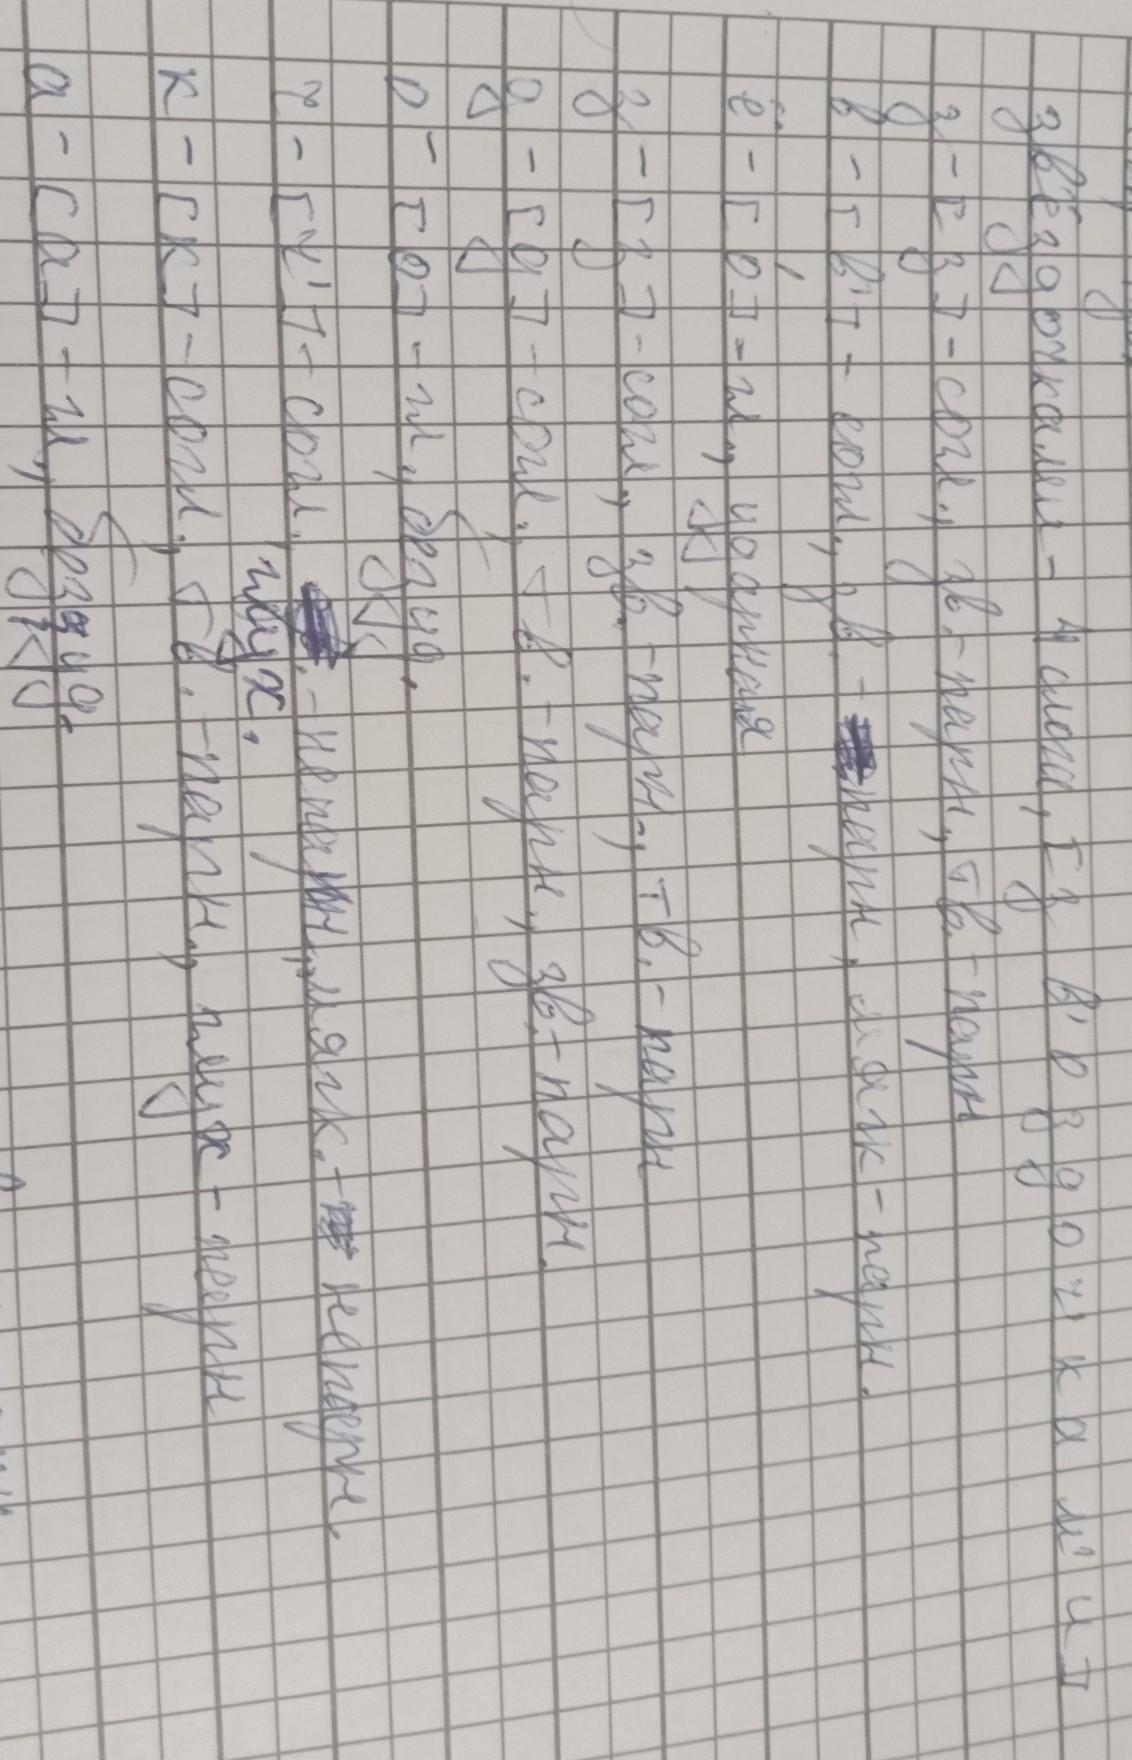 звёздочками - 4 слога, [з в' о з д о ч' к а м' и]
з - [з] - согл., зв. - парн., тв. - парн
в - [в'] - согл., зв - парн., мягк - парн.
ё - [о́] - гл., ударная
з - [з] - согл., зв. - парн., тв. - парн
д - [д] - согл., тв. - парн., зв. - парн.
о - [о] - гл., безуд.
ч - [ч'] - согл., глух. - непарн., мягк. - непарн.
к - [к] - согл., тв. - парн., глух - парн
а - [а] - гл., безуд.